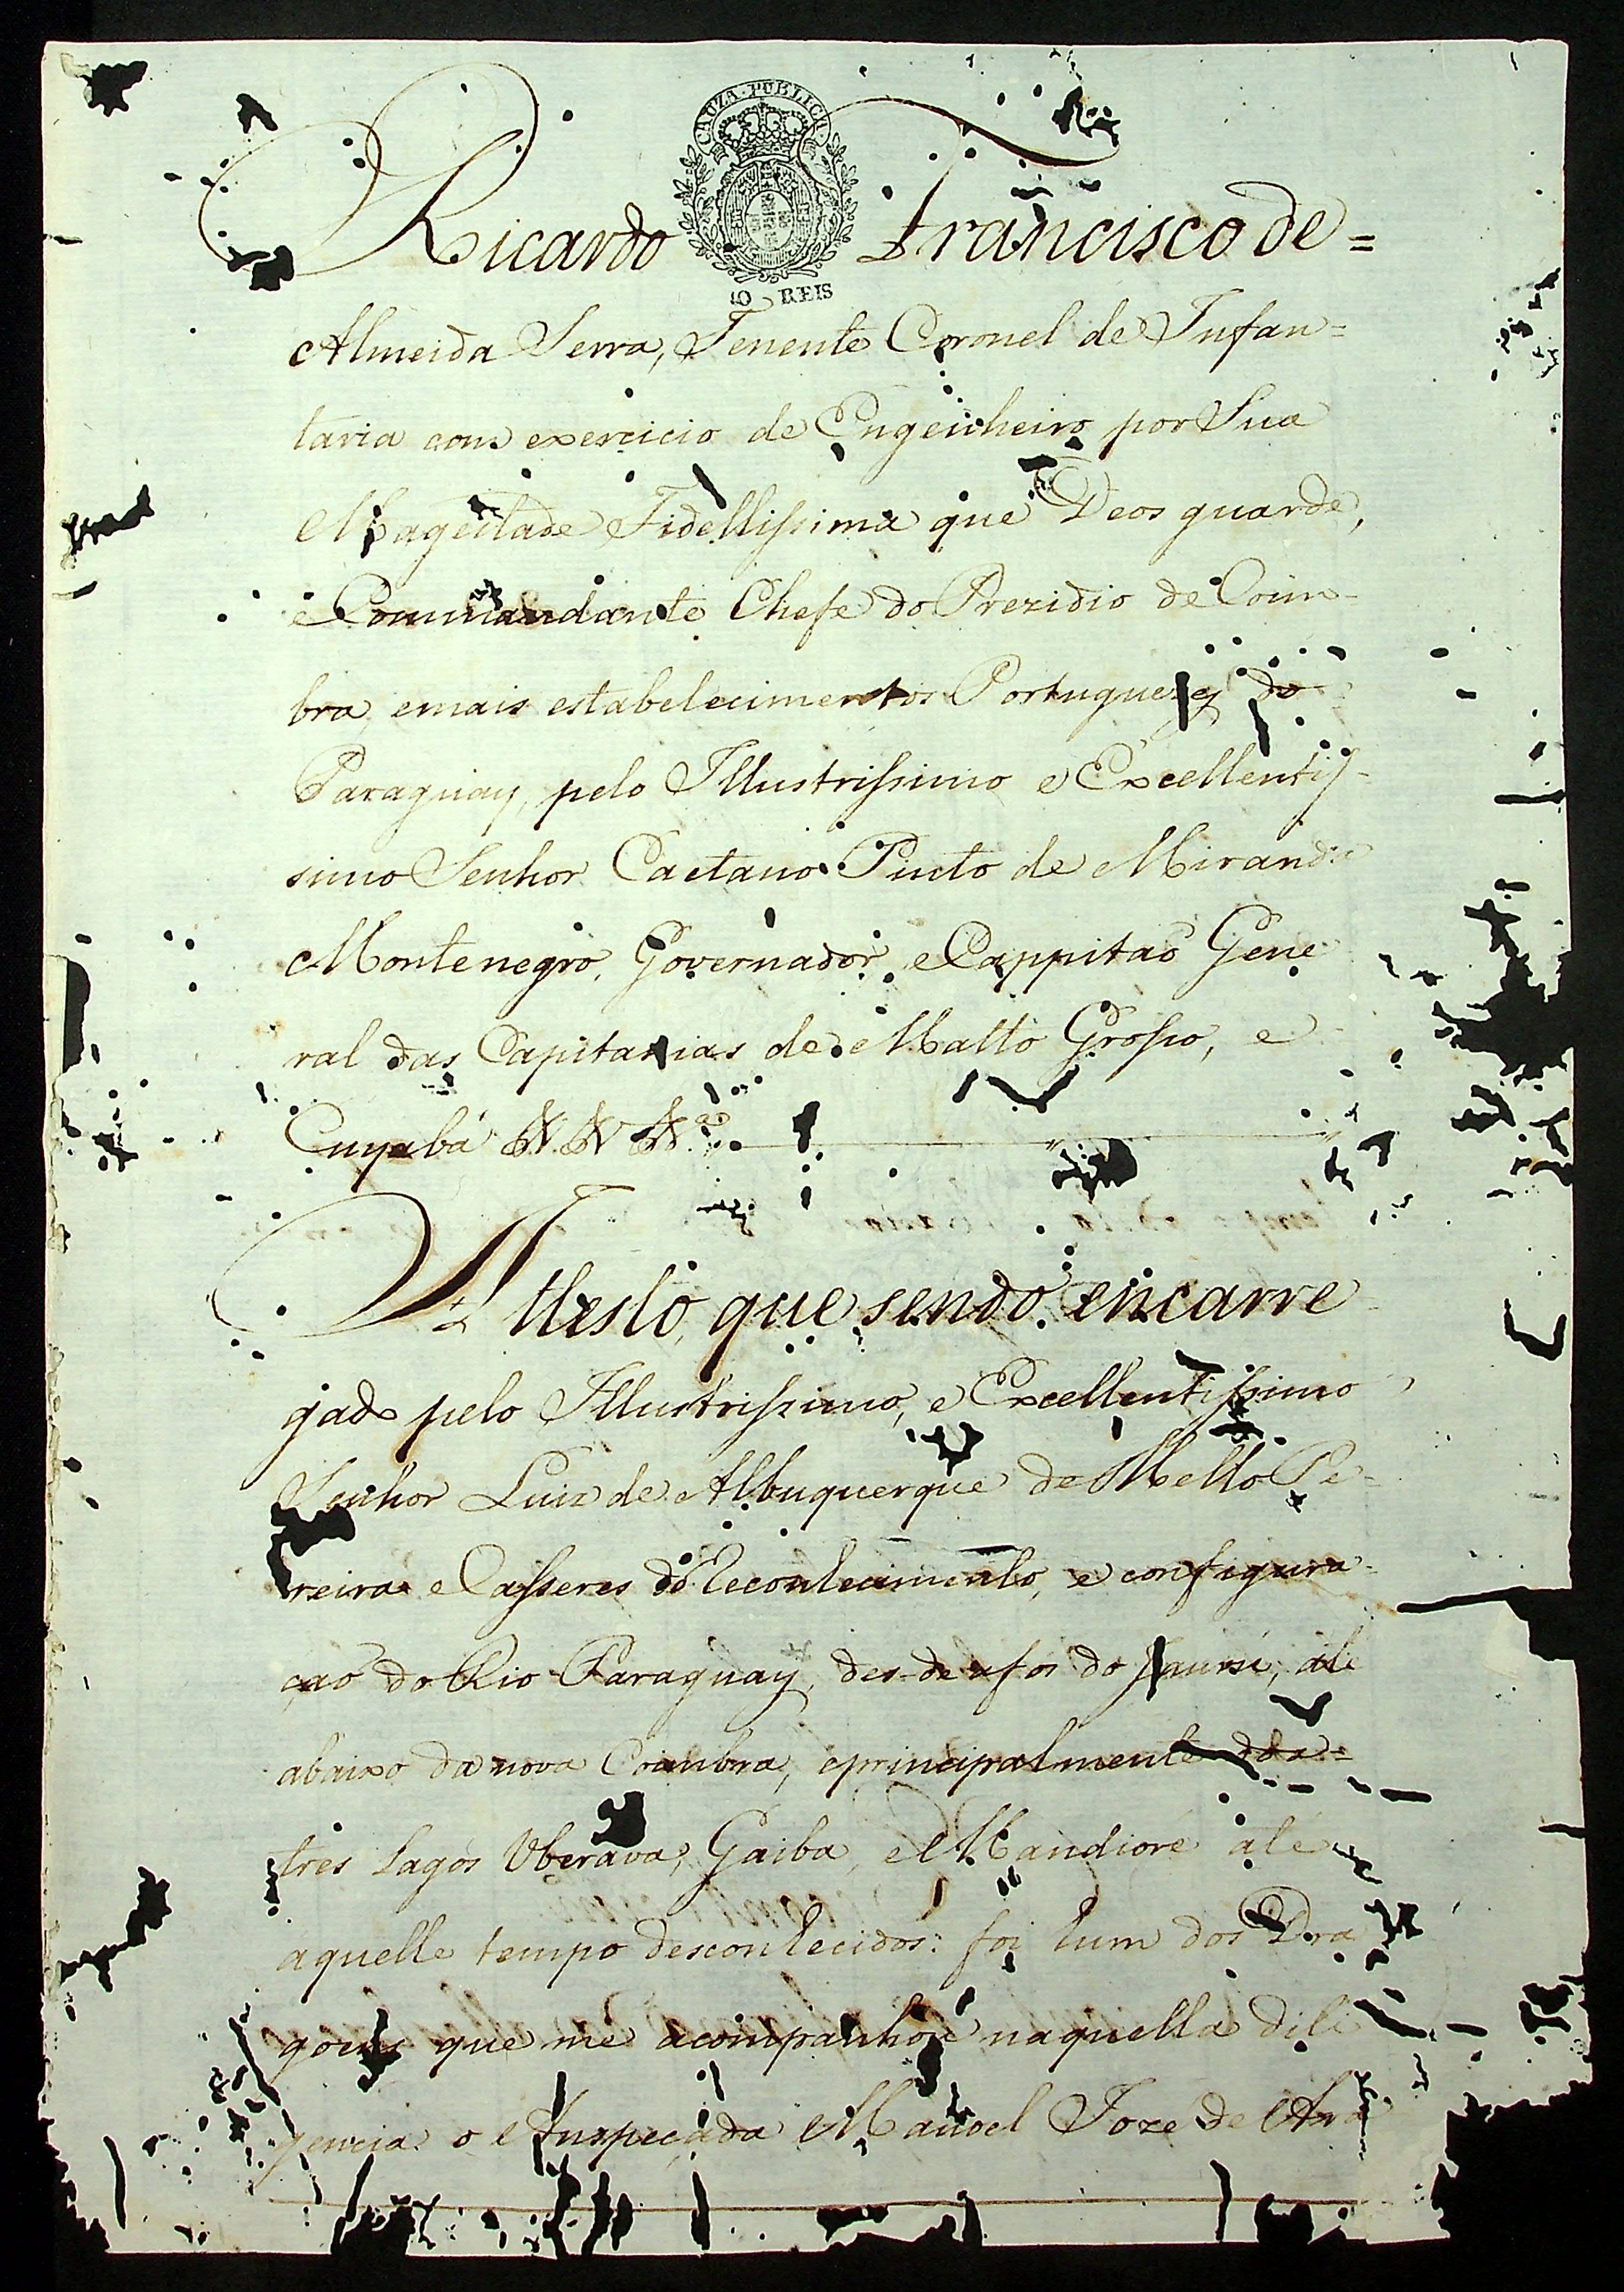 CAUZA PUBLICA
Ricardo Francisco de=
10 REIS
Almeida Serra, Tenente Coronel de Infan=
taria com exercicio de Engenheiro por Sua
Magestade Fidellissima que Deos guarde,
e Commandante Chefe do Prezidio de Coim-
bra, emais estabelecimentos Portuguezes do
Paraguay, pelo Illustrissimo e Excellentis-
simo Senhor Caetano Pinto de Miranda
Montenegro, Governador, e Cappitaõ Gene
ral das Capitanias de Matto Grosso, e
Cuyabá
Attesto, que sendo encarre-
gado pelo Illustrissimo, e Excellentissimo
Senhor Luiz de Albuquerque de Mello Pe-
reira e Casseres do Reconhecimento, e configura-
çaõ do Rio Paraguay, des-de afos do Jaurú, até
abaixo da nova Coimbra, eprincipalmente dos=
tres Lagos Uberava, Gaiba, e Mandioré até
aquelle tempo desconhecidos: foi hum dos Dra
goens que me acompanhou naquella dili
gencia o Anspeçada Manoel Joze de Ara